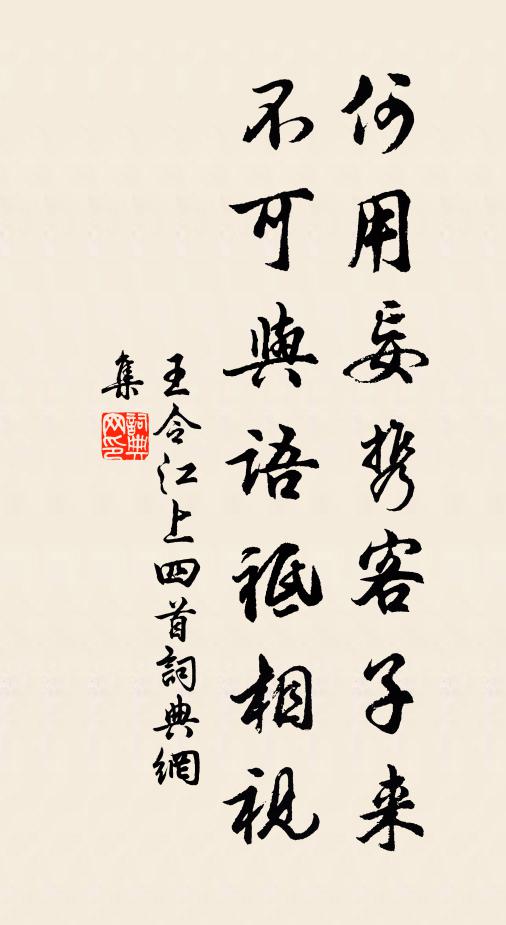 何用妄携客子来
不可與语祗相視
王令江上四首詞典網
集
詞典
网印